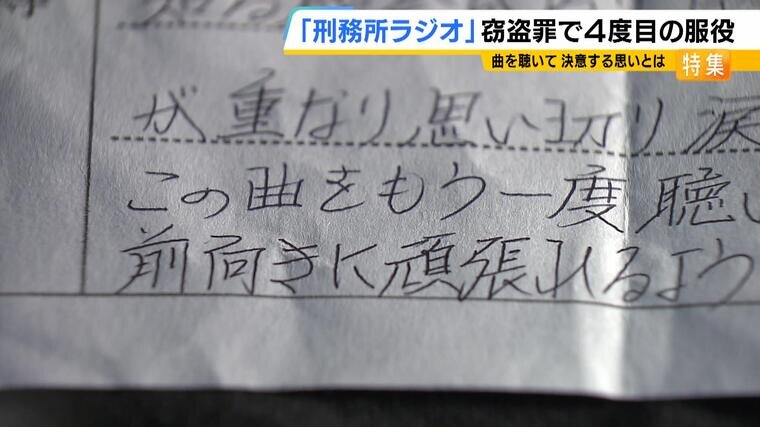 「刑務所ラジオ」窃盗罪で4度目の服役
曲を聴いて 決意する思いとは
特集
が重なり、思い切り涙
この曲をもう一度聴い
前向きに頑張れるよう